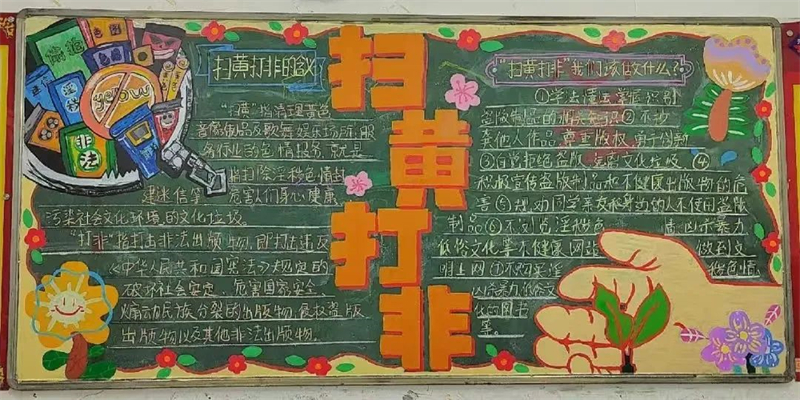 扫黄打非
扫黄打非的含义
"扫黄"指清理黄色
音像制品及歌舞娱乐场所、服
务行业的色情服务,就是
扫除淫秽色情封
建迷信等危害人们身心健康、
污染社会文化环境的文化垃圾。
"打非"指打击非法出版物,即打击违反
《中华人民共和国宪法》规定的
破坏社会安定、危害国家安全、
煽动民族分裂的出版物,侵权盗版
出版物以及其他非法出版物。
非法
"扫黄打非"我们该做什么?
①学法懂法掌握识别
盗版制品的相关知识②不抄
袭他人作品,尊重版权,勇于创新
③自觉拒绝盗版,远离文化垃圾④
积极宣传盗版制品和不健康出版物的危
害⑤劝动同学亲友和身边的人不使用盗版
制品⑥不浏览淫秽色情凶杀暴力
低俗文化等不健康网站做到文
明上网⑦不购买淫秽色情
凶杀暴力低俗文
化的图书
等